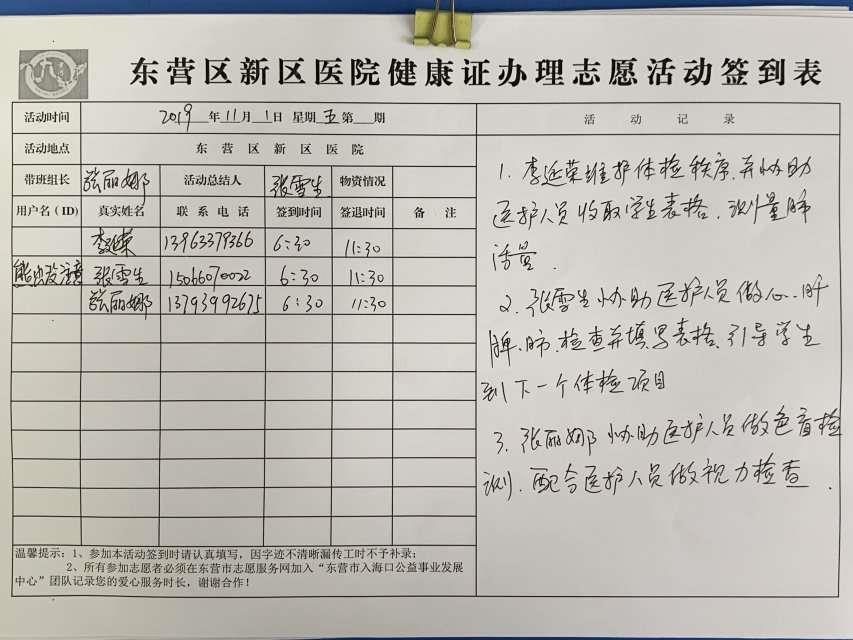 东营区新区医院健康证办理志愿活动签到表
活动时间 2019年11月1日 星期五第 期
活动地点 东营区新区医院
带班组长 张丽娜 活动总结人 张雪生 物资情况
用户名(ID) 真实姓名 联系电话 签到时间 签退时间 备注
李延荣 13963379366 6:30 11:30
张雪生 15066070022 6:30 11:30
张丽娜 13793992675 6:30 11:30
温馨提示：1、参加本活动签到时请认真填写，因字迹不清晰漏传工时不予补录；
2、所有参加志愿者必须在东营市志愿服务网加入“东营市入海口公益事业发展
中心”团队记录您的爱心服务时长，谢谢合作！
活动记录
1. 李延荣维护体检秩序.并协助
医护人员收取学生表格.测量肺
活量.
2. 张雪生协助医护人员做心..肝
脾.肺.检查并填写表格.引导学生
到下一个体检项目
3. 张丽娜协助医护人员做色盲检
测.配合医护人员做视力检查.